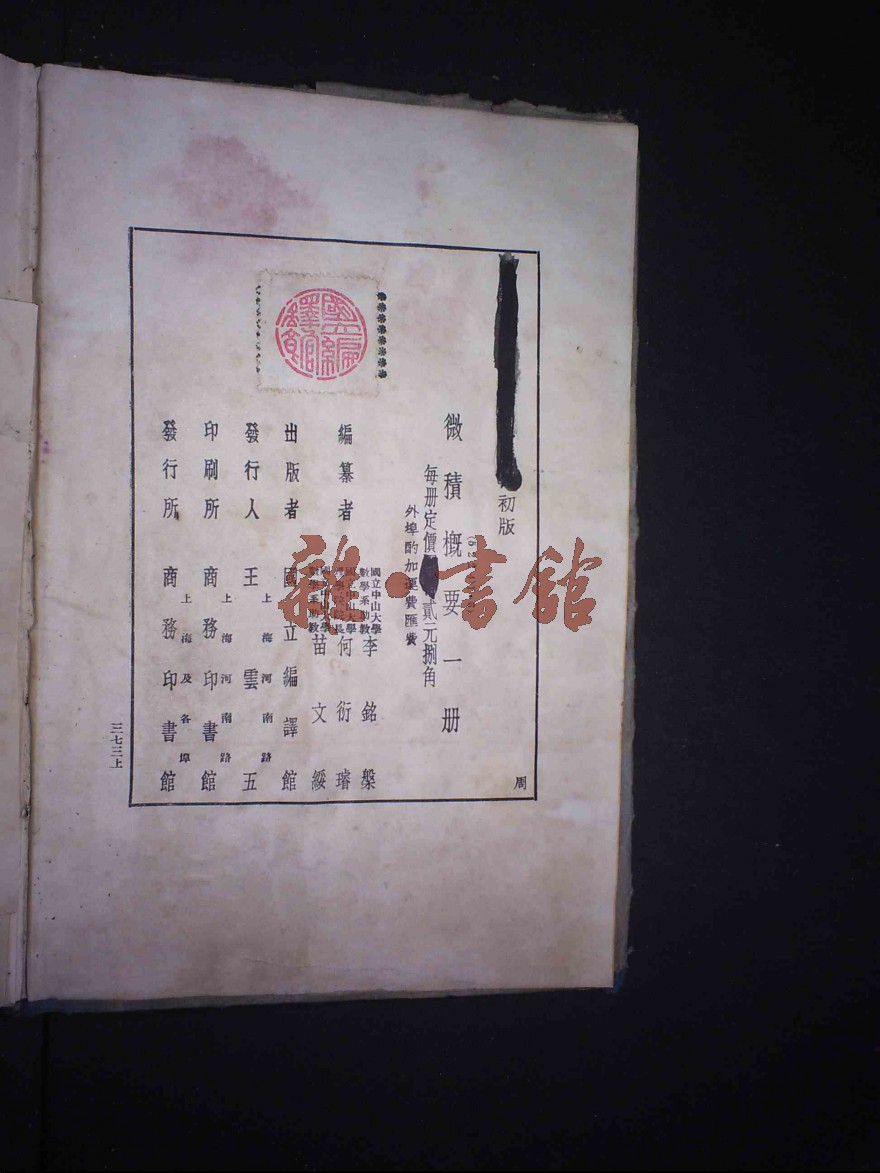 初版
微積概要一册
(5
每册定價貳元捌角
外埠酌加運費匯費
編纂者
國立中山大學
數學系助教
李銘槃
何衍璿
苗文綏
出版者 國立編譯館
發行人 王雲五
上海河南路
印刷所 商務印書館
上海河南路
發行所 商務印書館
上海及各埠
國立編譯館
周
三七三上
雜·書館